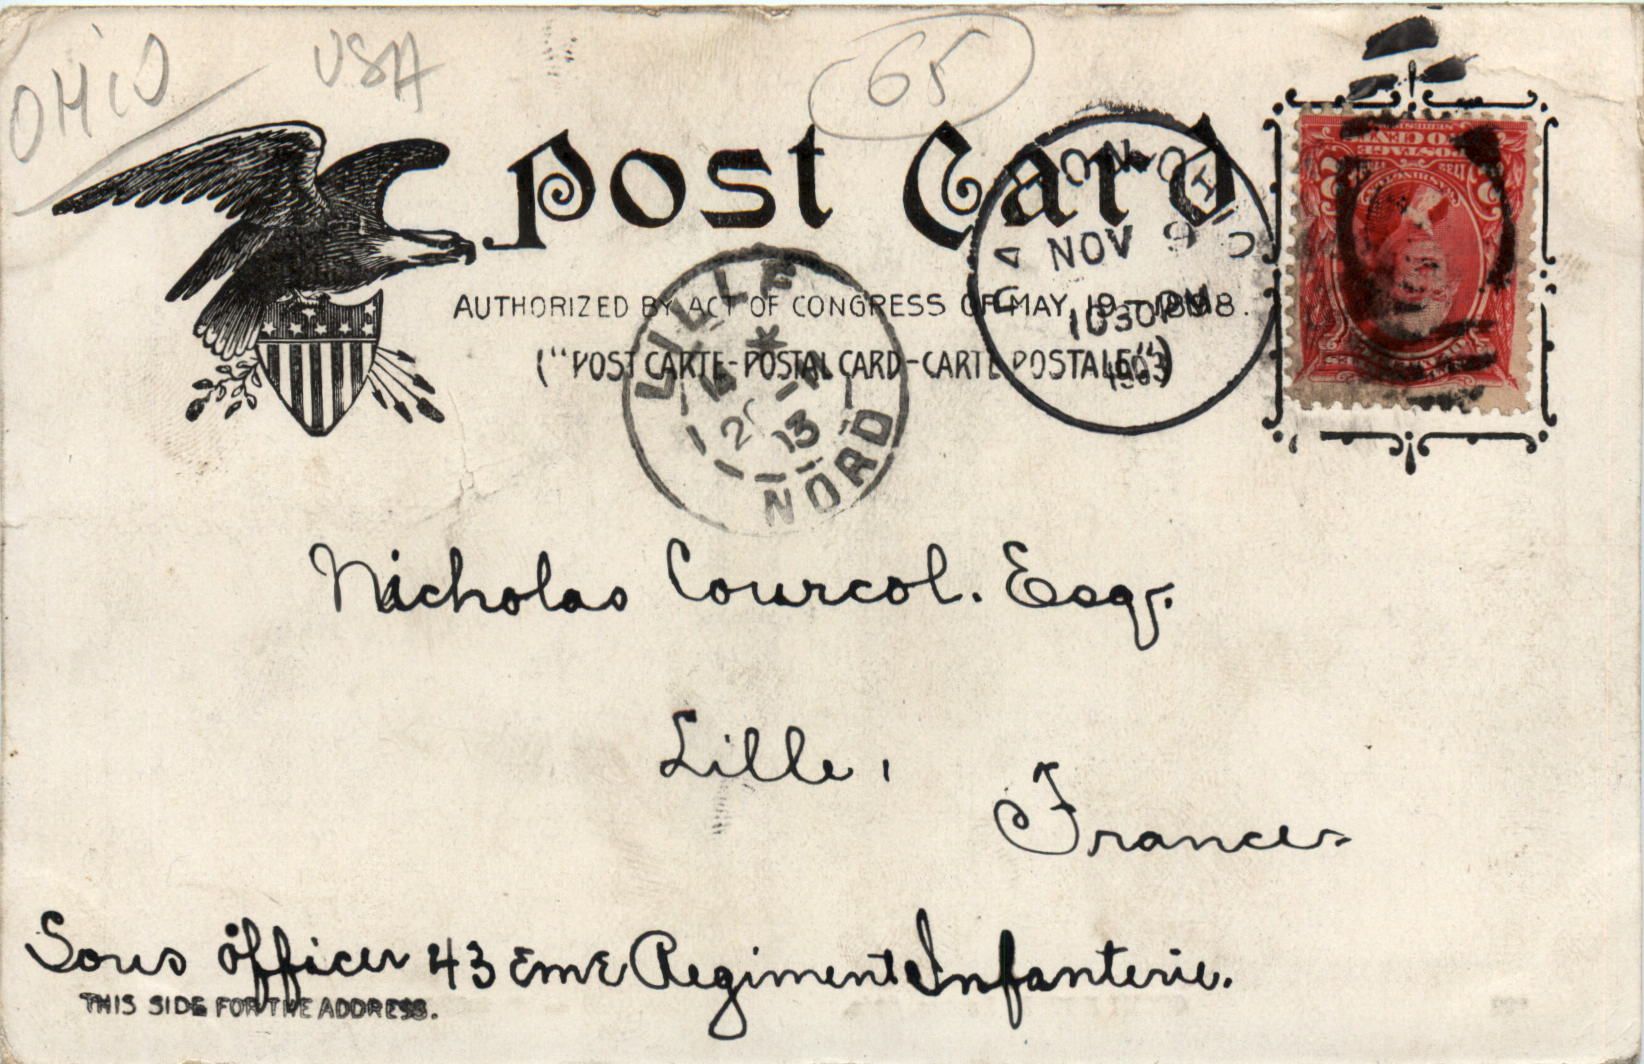 OHiO USA 65
Post Card
AUTHORIZED BY ACT OF CONGRESS OF MAY, 19-1898.
("POST CARTE-POSTAL CARD-CARTE POSTALE")
NOV 9
1030PM
1903
LILLE
13
NORD
Nicholas Courcol. Esqr.
Lille,
France
Sous officer 43 eme Regiment Infanterie.
THIS SIDE FOR THE ADDRESS.